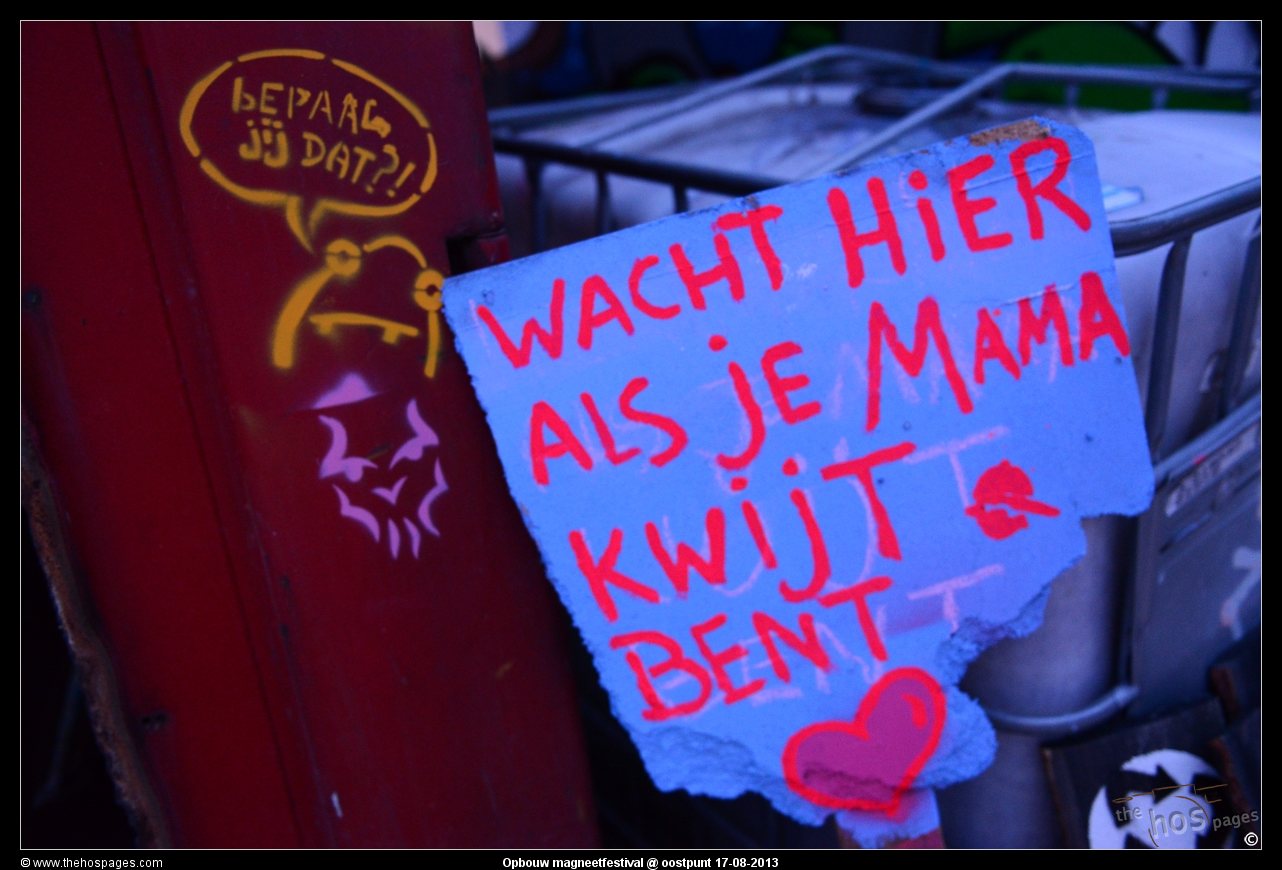 bEPAAL
jij DAT?!
WACHT HiER
ALS je MAMA
KWijT
BENT
the hos pages
©
© www.thehospages.com
Opbouw magneetfestival @ oostpunt 17-08-2013